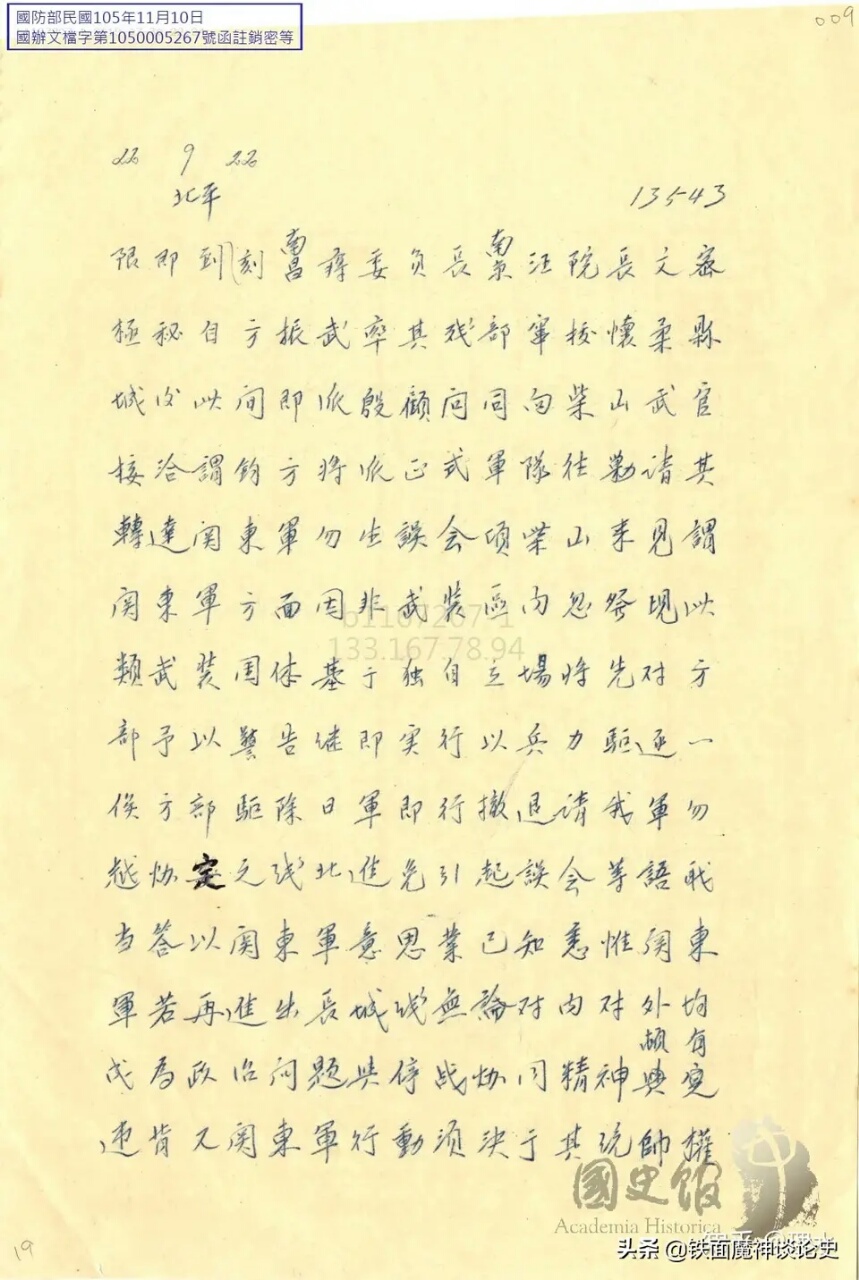 國防部民國105年11月10日
國辦文檔字第1050005267號函註銷密等
009
22 9 22
北平
13543
限即到刻南昌蔣委員長南京汪院長文密
極秘自方振武率其残部窜撥懷柔縣
城後此间即派殷顧问同向柴山武官
接洽謂鈞方将派正式軍隊往勦请其
轉達関東軍勿生誤会頃柴山来見謂
関東軍方面因非武装區内忽發現此
類武装团体基于独自立場将先对方
部予以警告继即实行以兵力驅逐一
俟方部驅除日軍即行撤退请我軍勿
越协定之线北進免引起誤会等語我
当答以関東軍意思業已知悉惟関東
軍若再進出長城线無論对内对外均
成為政治问題与停战协同精神頗有與定
违背又関東軍行動须决于其统帥權
b1167267-1
133.167.78.94
國史館
Academia Historica
知乎
头条 @铁面魔神谈论史
19